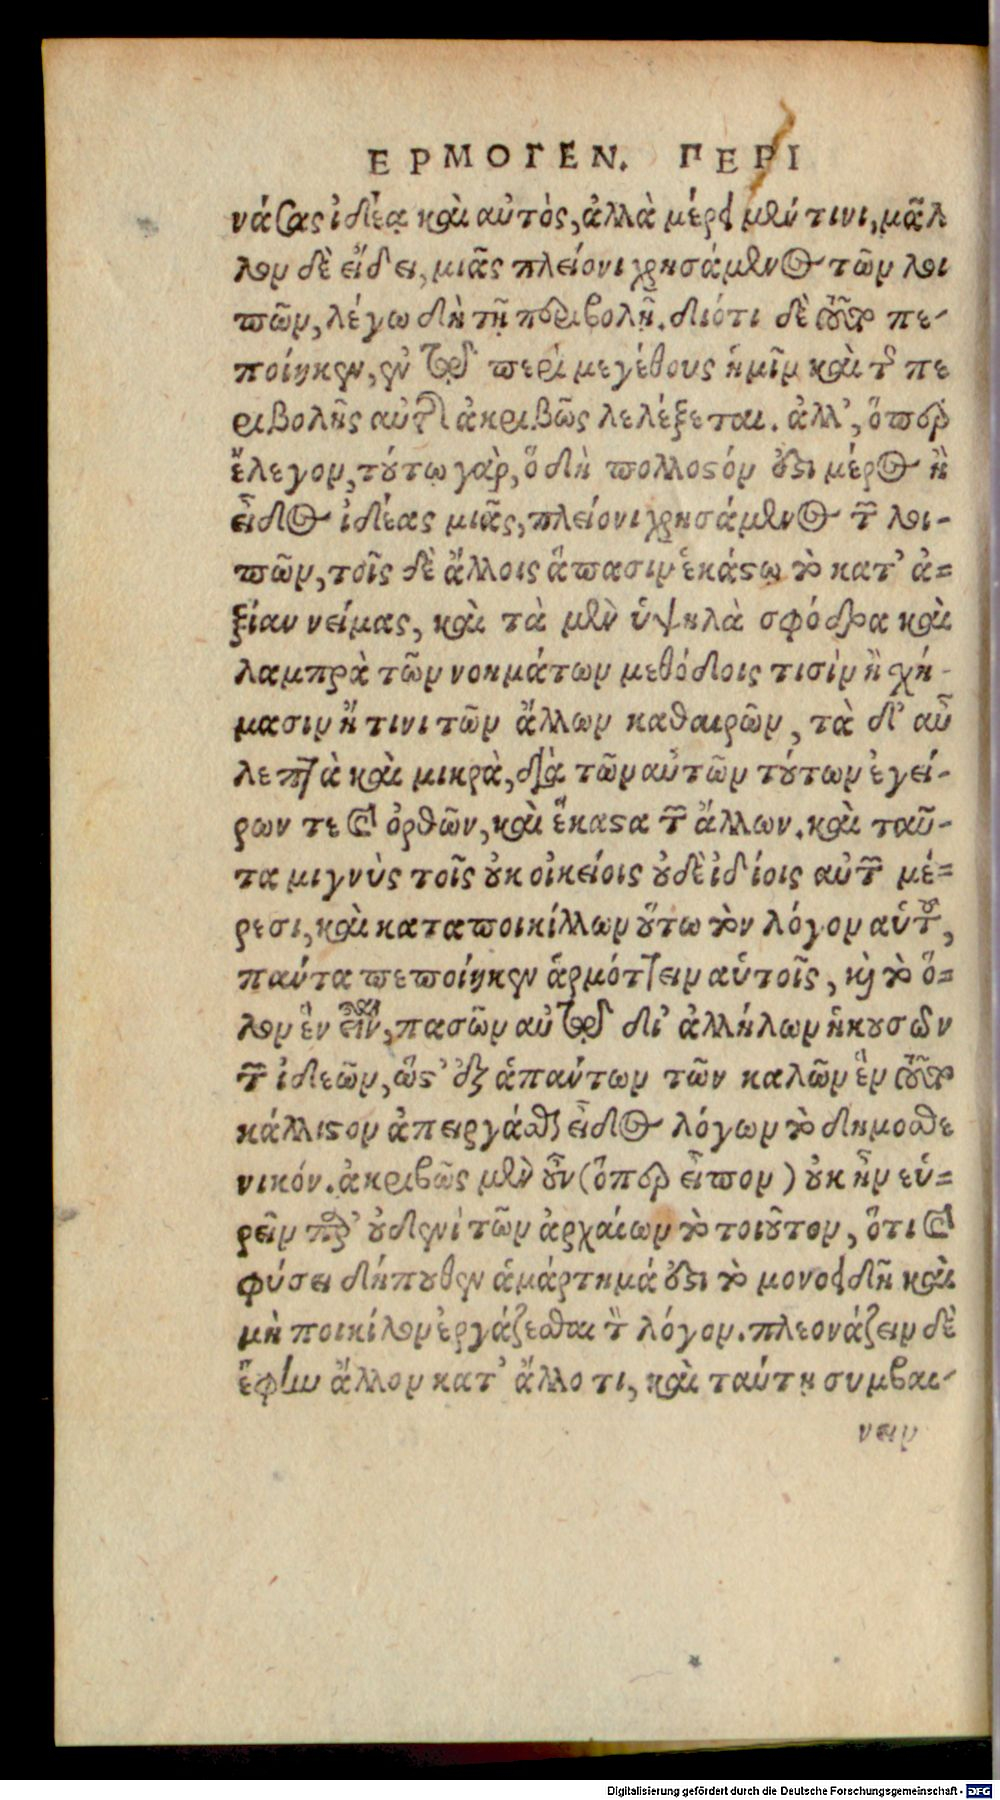 ΕΡΜΟΓΕΝ. ΠΕΡΙ
νάσας ἰδέᾳ καὶ αὐτὸς, ἀλλὰ μέρει μέν τινι, μᾶλ
λον δὲ εἴδει, μιᾶς πλείονι χρησάμενος τῶν λοι
πῶν, λέγω δὴ τῇ περιβολῇ. διότι δὲ τοῦτο πε-
ποίηκεν, ἐν τῷ περὶ μεγέθους ἡμῖν καὶ τῆς πε
ριβολῆς αὐτὸ ἀκριβῶς λελέξεται. ἀλλ', ὅπερ
ἔλεγον, τούτῳ γὰρ, ὃ δὴ πολλοστόν ἐστι μέρος ἢ
εἶδος ἰδέας μιᾶς, πλείονι χρησάμενος τῶν λοι-
πῶν, τοῖς δὲ ἄλλοις ἅπασιν ἑκάστῳ τὸ κατ' ἀ-
ξίαν νείμας, καὶ τὰ μὲν ὑψηλὰ σφόδρα καὶ
λαμπρὰ τῶν νοημάτων μεθόδοις τισὶν ἢ σχή-
μασιν ἤ τινι τῶν ἄλλων καθαιρῶν, τὰ δ' αὖ
λεπτὰ καὶ μικρὰ, διὰ τῶν αὐτῶν τούτων ἐγεί-
ρων τε καὶ ὀρθῶν, καὶ ἕκαστα τῶν ἄλλων. καὶ ταῦ-
τα μιγνὺς τοῖς οὐκ οἰκείοις οὐδὲ ἰδίοις αὐτῶν μέ-
ρεσι, καὶ καταποικίλλων οὕτω τὸν λόγον αὑτοῦ,
πάντα πεποίηκεν ἁρμόττειν αὑτοῖς, καὶ τὸ ὅ-
λον ἓν εἶναι, πασῶν αὐτῷ δι' ἀλλήλων ἡκουσῶν
τῶν ἰδεῶν, ὥστ' ἐξ ἁπάντων τῶν καλῶν ἓν τοῦτο
κάλλιστον ἀπειργάσθαι εἶδος λόγων τὸ δημοσθε
νικόν. ἀκριβῶς μὲν οὖν (ὅπερ εἶπον) οὐκ ἦν εὑ-
ρεῖν παρ' οὐδενὶ τῶν ἀρχαίων τὸ τοιοῦτον, ὅτι καὶ
φύσει δήπουθεν ἁμάρτημά ἐστι τὸ μονοειδῆ καὶ
μὴ ποικίλον ἐργάζεσθαι τὸν λόγον. πλεονάζειν δὲ
ἔφην ἄλλον κατ' ἄλλο τι, καὶ ταύτῃ συμβαι-
νειν
Digitalisierung gefördert durch die Deutsche Forschungsgemeinschaft - DFG